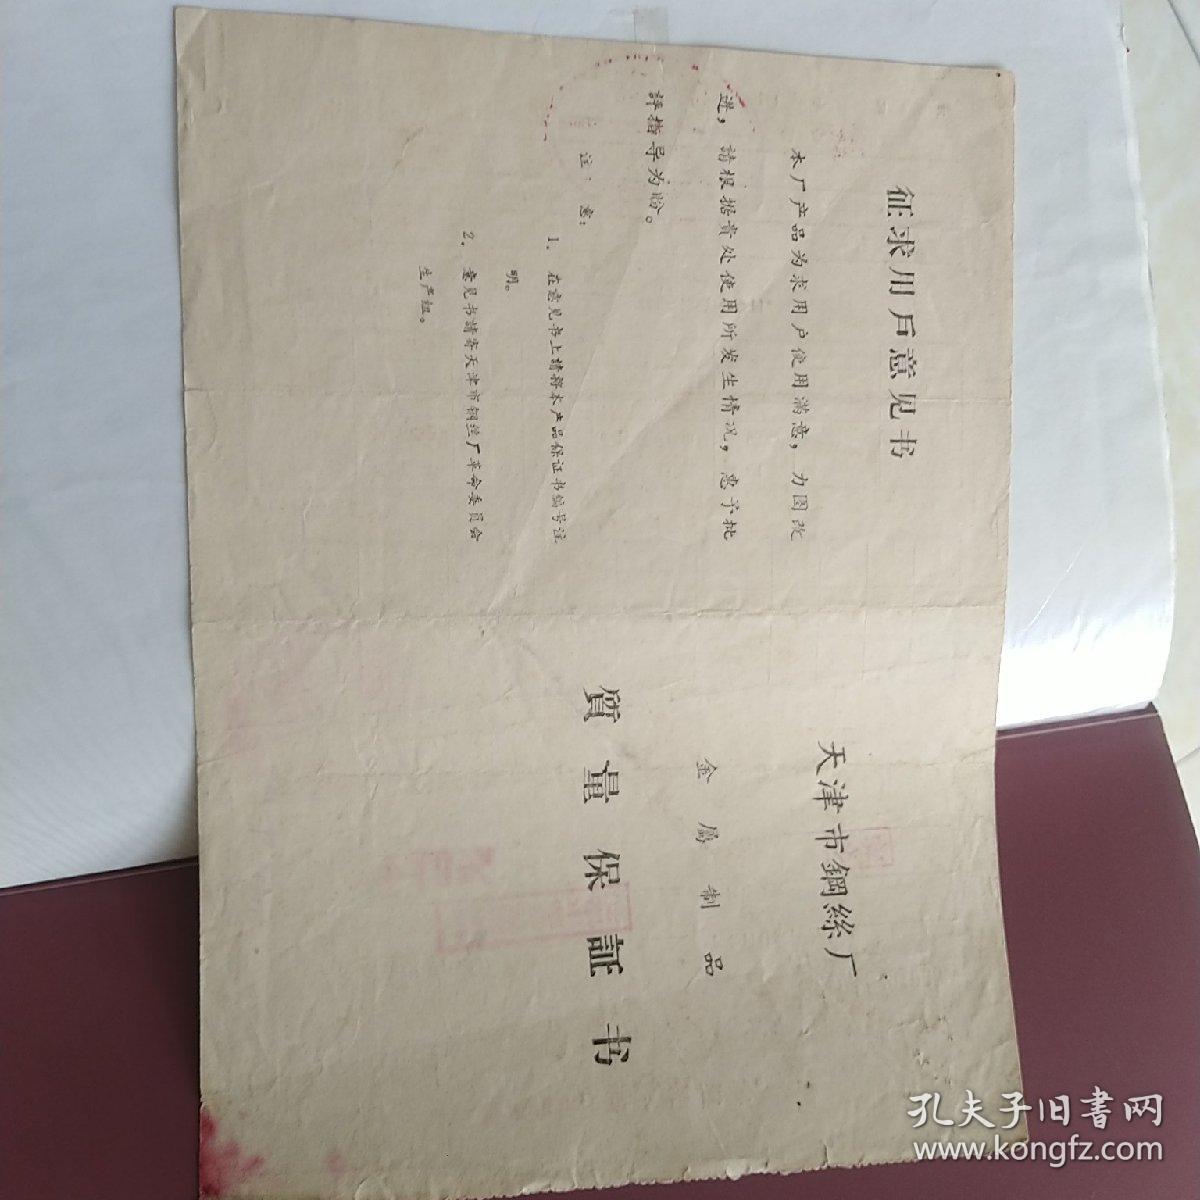 征求用戶意見书
本厂产品为求用户使用滿意，力图改
进，請根据貴处使用所发生情况，惠予批
評指导为盼。
注意：
1．在意见书上請将本产品保证书编号注
明。
2．意见书請寄天津市钢丝厂革命委員会
生产组。
天津市鋼絲厂
金属制品
質量保証书
孔夫子旧書网
www.kongfz.com